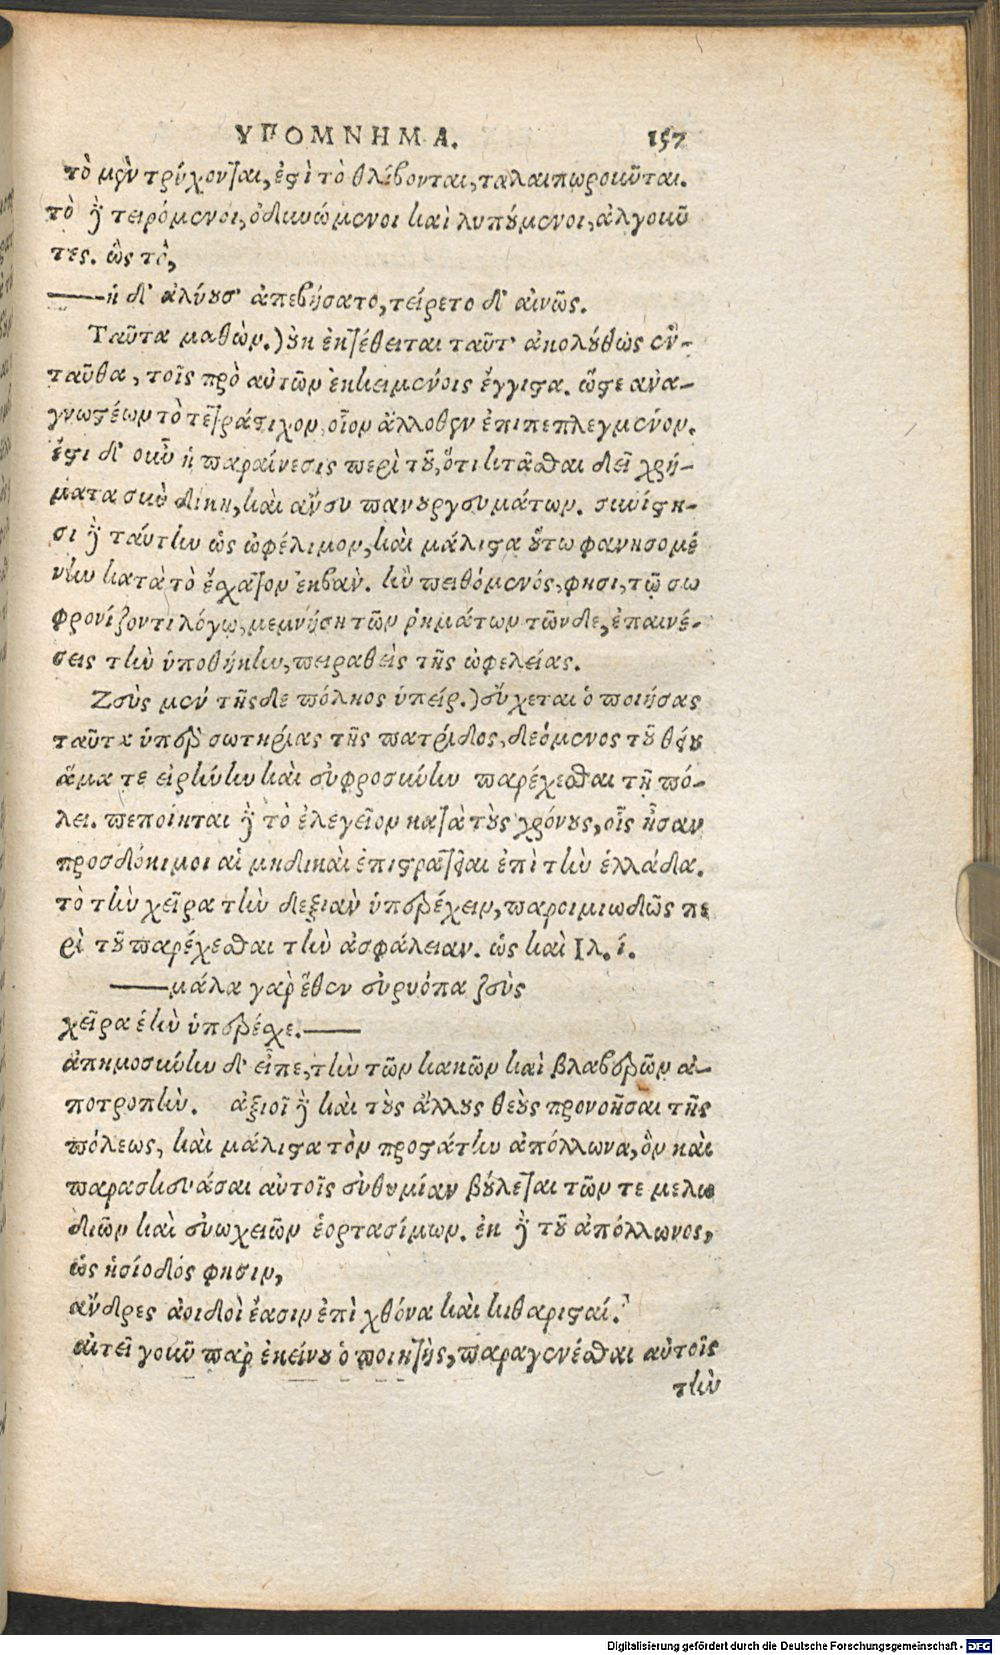 ΥΠΟΜΝΗΜΑ. 157
τὸ μὲν τρύχονται, ἐστὶ τὸ θλίβονται, ταλαιπωροῦνται.
τὸ δὲ τειρόμενοι, ὀδυνώμενοι καὶ λυπούμενοι, ἀλγοῦν
τες. ὡς τὸ,
——ἡ δ' ἀλύουσ' ἀπεβήσατο, τείρετο δ' αἰνῶς.
Ταῦτα μαθὼν.) οὐκ ἐκτέθειται ταῦτ' ἀκολούθως ἐν-
ταῦθα, τοῖς πρὸ αὐτῶν ἐκκειμένοις ἔγγιστα. ὥστε ανα-
γνωστέων τὸ τετράστιχον, οἷον ἄλλοθεν ἐπιπεπλεγμένον.
ἔστι δ' οὖν ἡ παραίνεσις περὶ τοῦ, ὅτι κτᾶσθαι δεῖ χρή-
ματα σὺν δίκῃ, καὶ ἄνευ πανουργευμάτων. συνίστη-
σι δὲ ταύτην ὡς ὠφέλιμον, καὶ μάλιστα οὕτω φανησομέ
νην κατὰ τὸ ἔσχατον ἐκβὰν. ἢν πειθόμενός, φησι, τῷ σω
φρονίζοντι λόγῳ, μεμνήσῃ τῶν ῥημάτων τῶνδε, ἐπαινέ-
σεις τὴν ὑποθήκην, πειραθεὶς τῆς ὠφελείας.
Ζεὺς μὲν τῆςδε πόληος ὑπείρ.) εὔχεται ὁ ποιήσας
ταῦτα ὑπὲρ σωτηρίας τῆς πατρίδος, δεόμενος τοῦ θεοῦ
ἅμα τε εἰρήνην καὶ εὐφροσύνην παρέχεσθαι τῇ πό-
λει. πεποίηται δὲ τὸ ἐλεγεῖον κατὰ τοὺς χρόνους, οἷς ἦσαν
προσδόκιμοι αἱ μηδικαὶ ἐπιστρατεῖαι ἐπὶ τὴν ἑλλάδα.
τὸ τὴν χεῖρα τὴν δεξιὰν ὑπερέχειν, παροιμιωδῶς πε
ρὶ τοῦ παρέχεσθαι τὴν ἀσφάλειαν. ὡς καὶ Ιλ. ί.
——μάλα γὰρ ἕθεν εὐρυόπα ζεὺς
χεῖρα ἑὴν ὑπερέσχε.——
ἀπημοσύνην δ' εἶπε, τὴν τῶν κακῶν καὶ βλαβερῶν ἀ-
ποτροπὴν. ἀξιοῖ δὲ καὶ τοὺς ἄλλους θεοὺς προνοῆσαι τῆς
πόλεως, καὶ μάλιστα τὸν προστάτην ἀπόλλωνα, ὃν καὶ
παρασκευάσαι αὐτοῖς εὐθυμίαν βούλεται τῶν τε μελῳ
διῶν καὶ εὐωχειῶν ἑορτασίμων. ἐκ δὲ τοῦ ἀπόλλωνος,
ὡς ἡσίοδός φησιν,
ἄνδρες ἀοιδοὶ ἔασιν ἐπὶ χθόνα καὶ κιθαρισταί.
αἰτεῖ γοῦν παρ' ἐκείνου ὁ ποιητὴς, παραγενέσθαι αὐτοῖς
τὴν
Digitalisierung gefördert durch die Deutsche Forschungsgemeinschaft - DFG